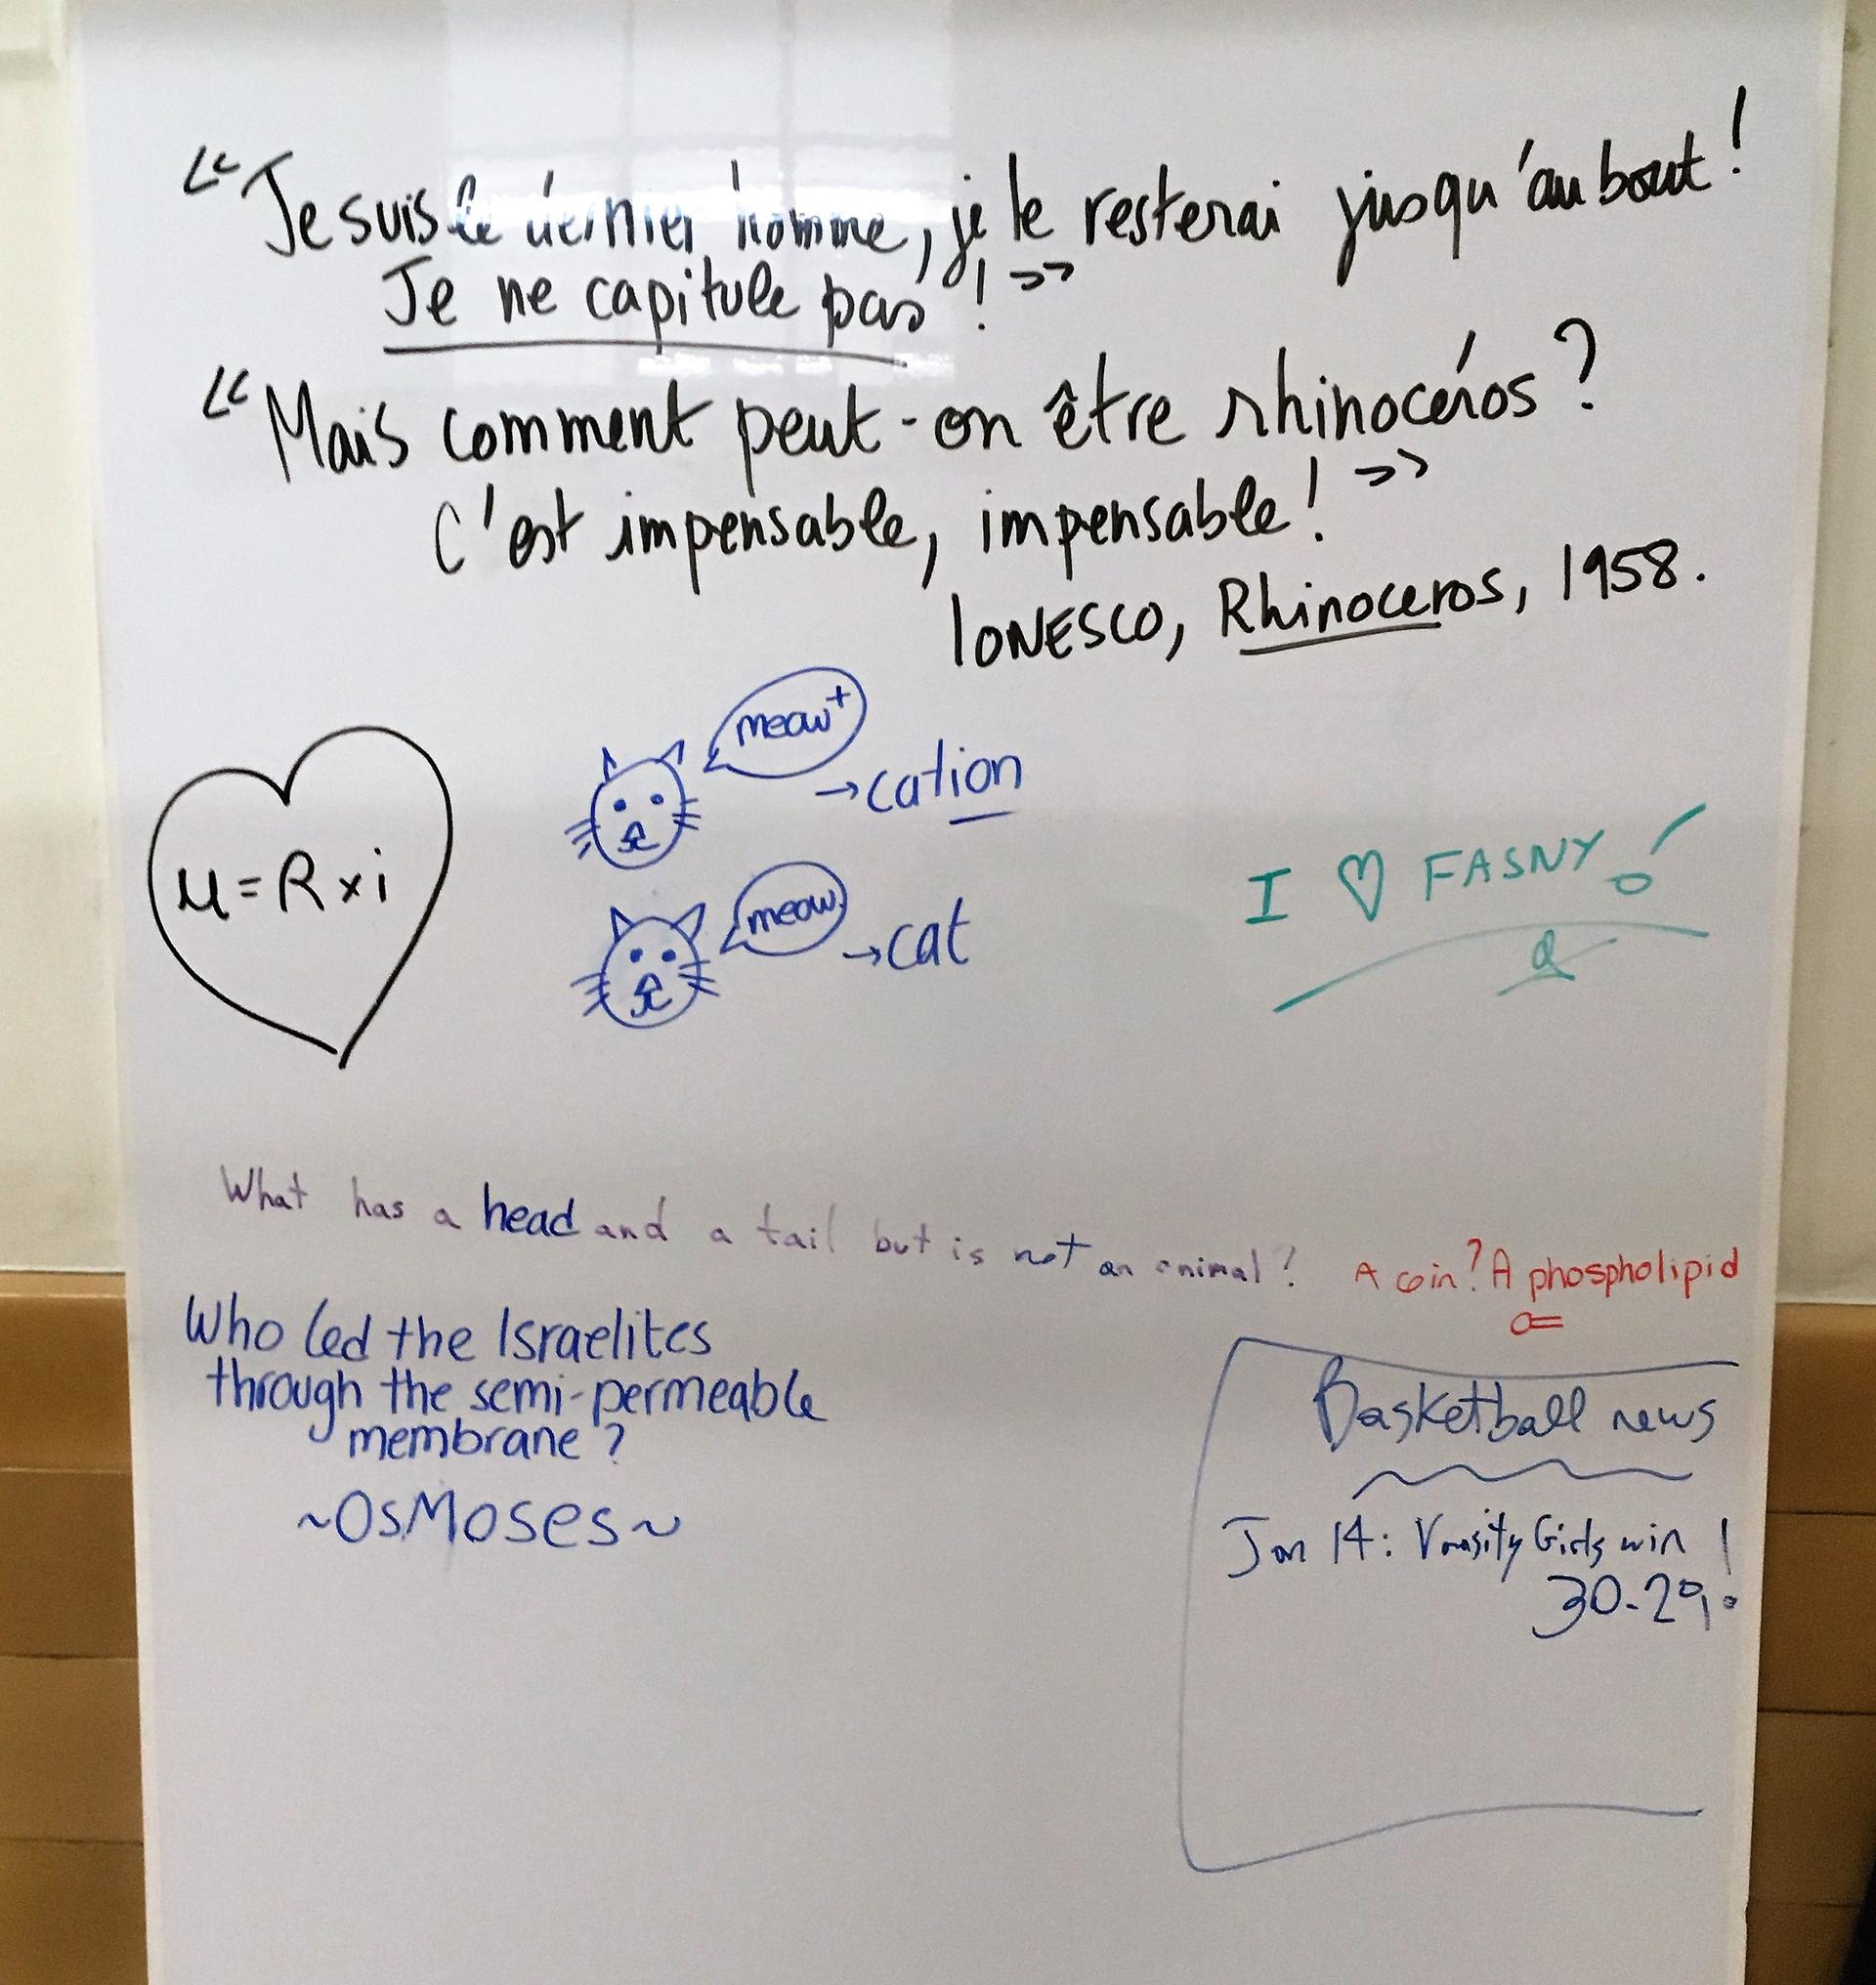 « Je suis le dernier homme, je le resterai jusqu'au bout !
Je ne capitule pas ! »
« Mais comment peut-on être rhinocéros ?
C'est impensable, impensable ! »
IONESCO, Rhinoceros, 1958.
meow+
→cation
u=R×i
meow
→cat
I ♡ FASNY!
What has a head and a tail but is not an animal? A coin? A phospholipid
Who led the Israelites
through the semi-permeable
membrane?
~OsMoses~
Basketball news
Jan 14: Varsity Girls win !
30-29!